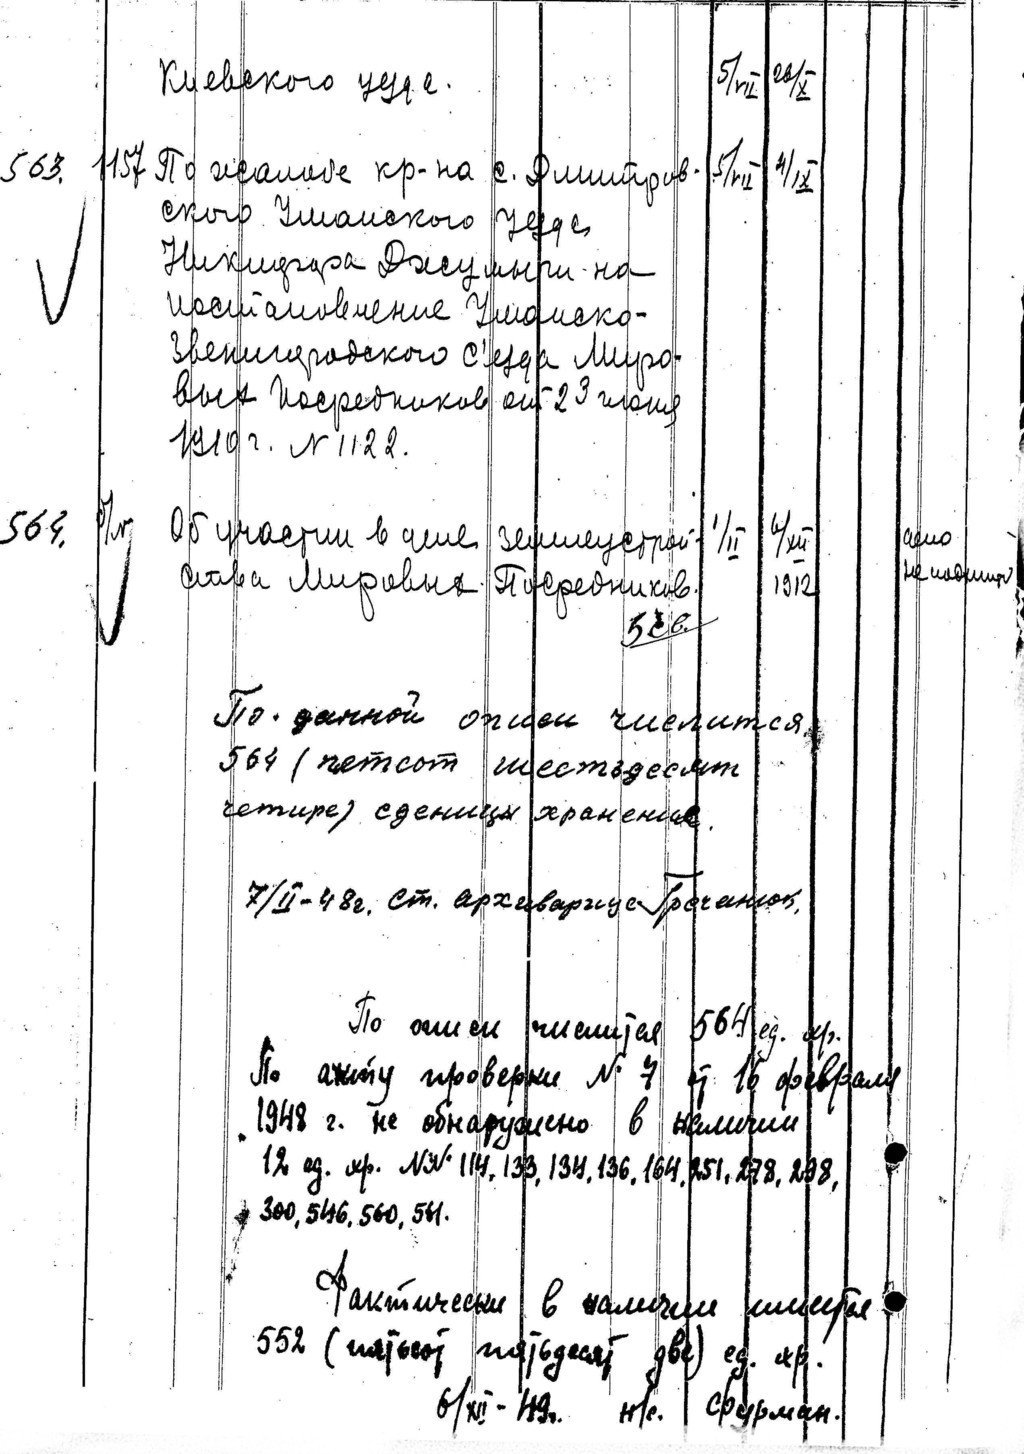 Киевского уезда. 5/VII 20/X
563. 1157 По жалобе кр-на с. Дмитров- 5/VII 4/IX
ского Уманского уезда
Никифора на
постановление Уманско-
Звенигородского Съезда Миро-
вых Посредников от 23 июня
1910 г. № 1122.
564. б/№ Об участии в деле землеустрой- 1/II 6/XII дело
ства Мировых Посредников. 1912 не подшито
5 св.
По данной описи числится
564 (петсот шестьдесят
четире) еденицы хранения.
7/II-48г. Ст. архивариус Гречанюк.
По описи числится 564 ед. хр.
По акту проверки № 7 от 16 февраля
1948 г. не обнаружено в наличии
12 ед. хр. №№ 114, 133, 134, 136, 164, 251, 278, 298,
300, 546, 560, 561.
Фактически в наличии имеется
552 (пятьсот пятьдесят две) ед. хр.
6/XII-49г. н/с. Фурман.